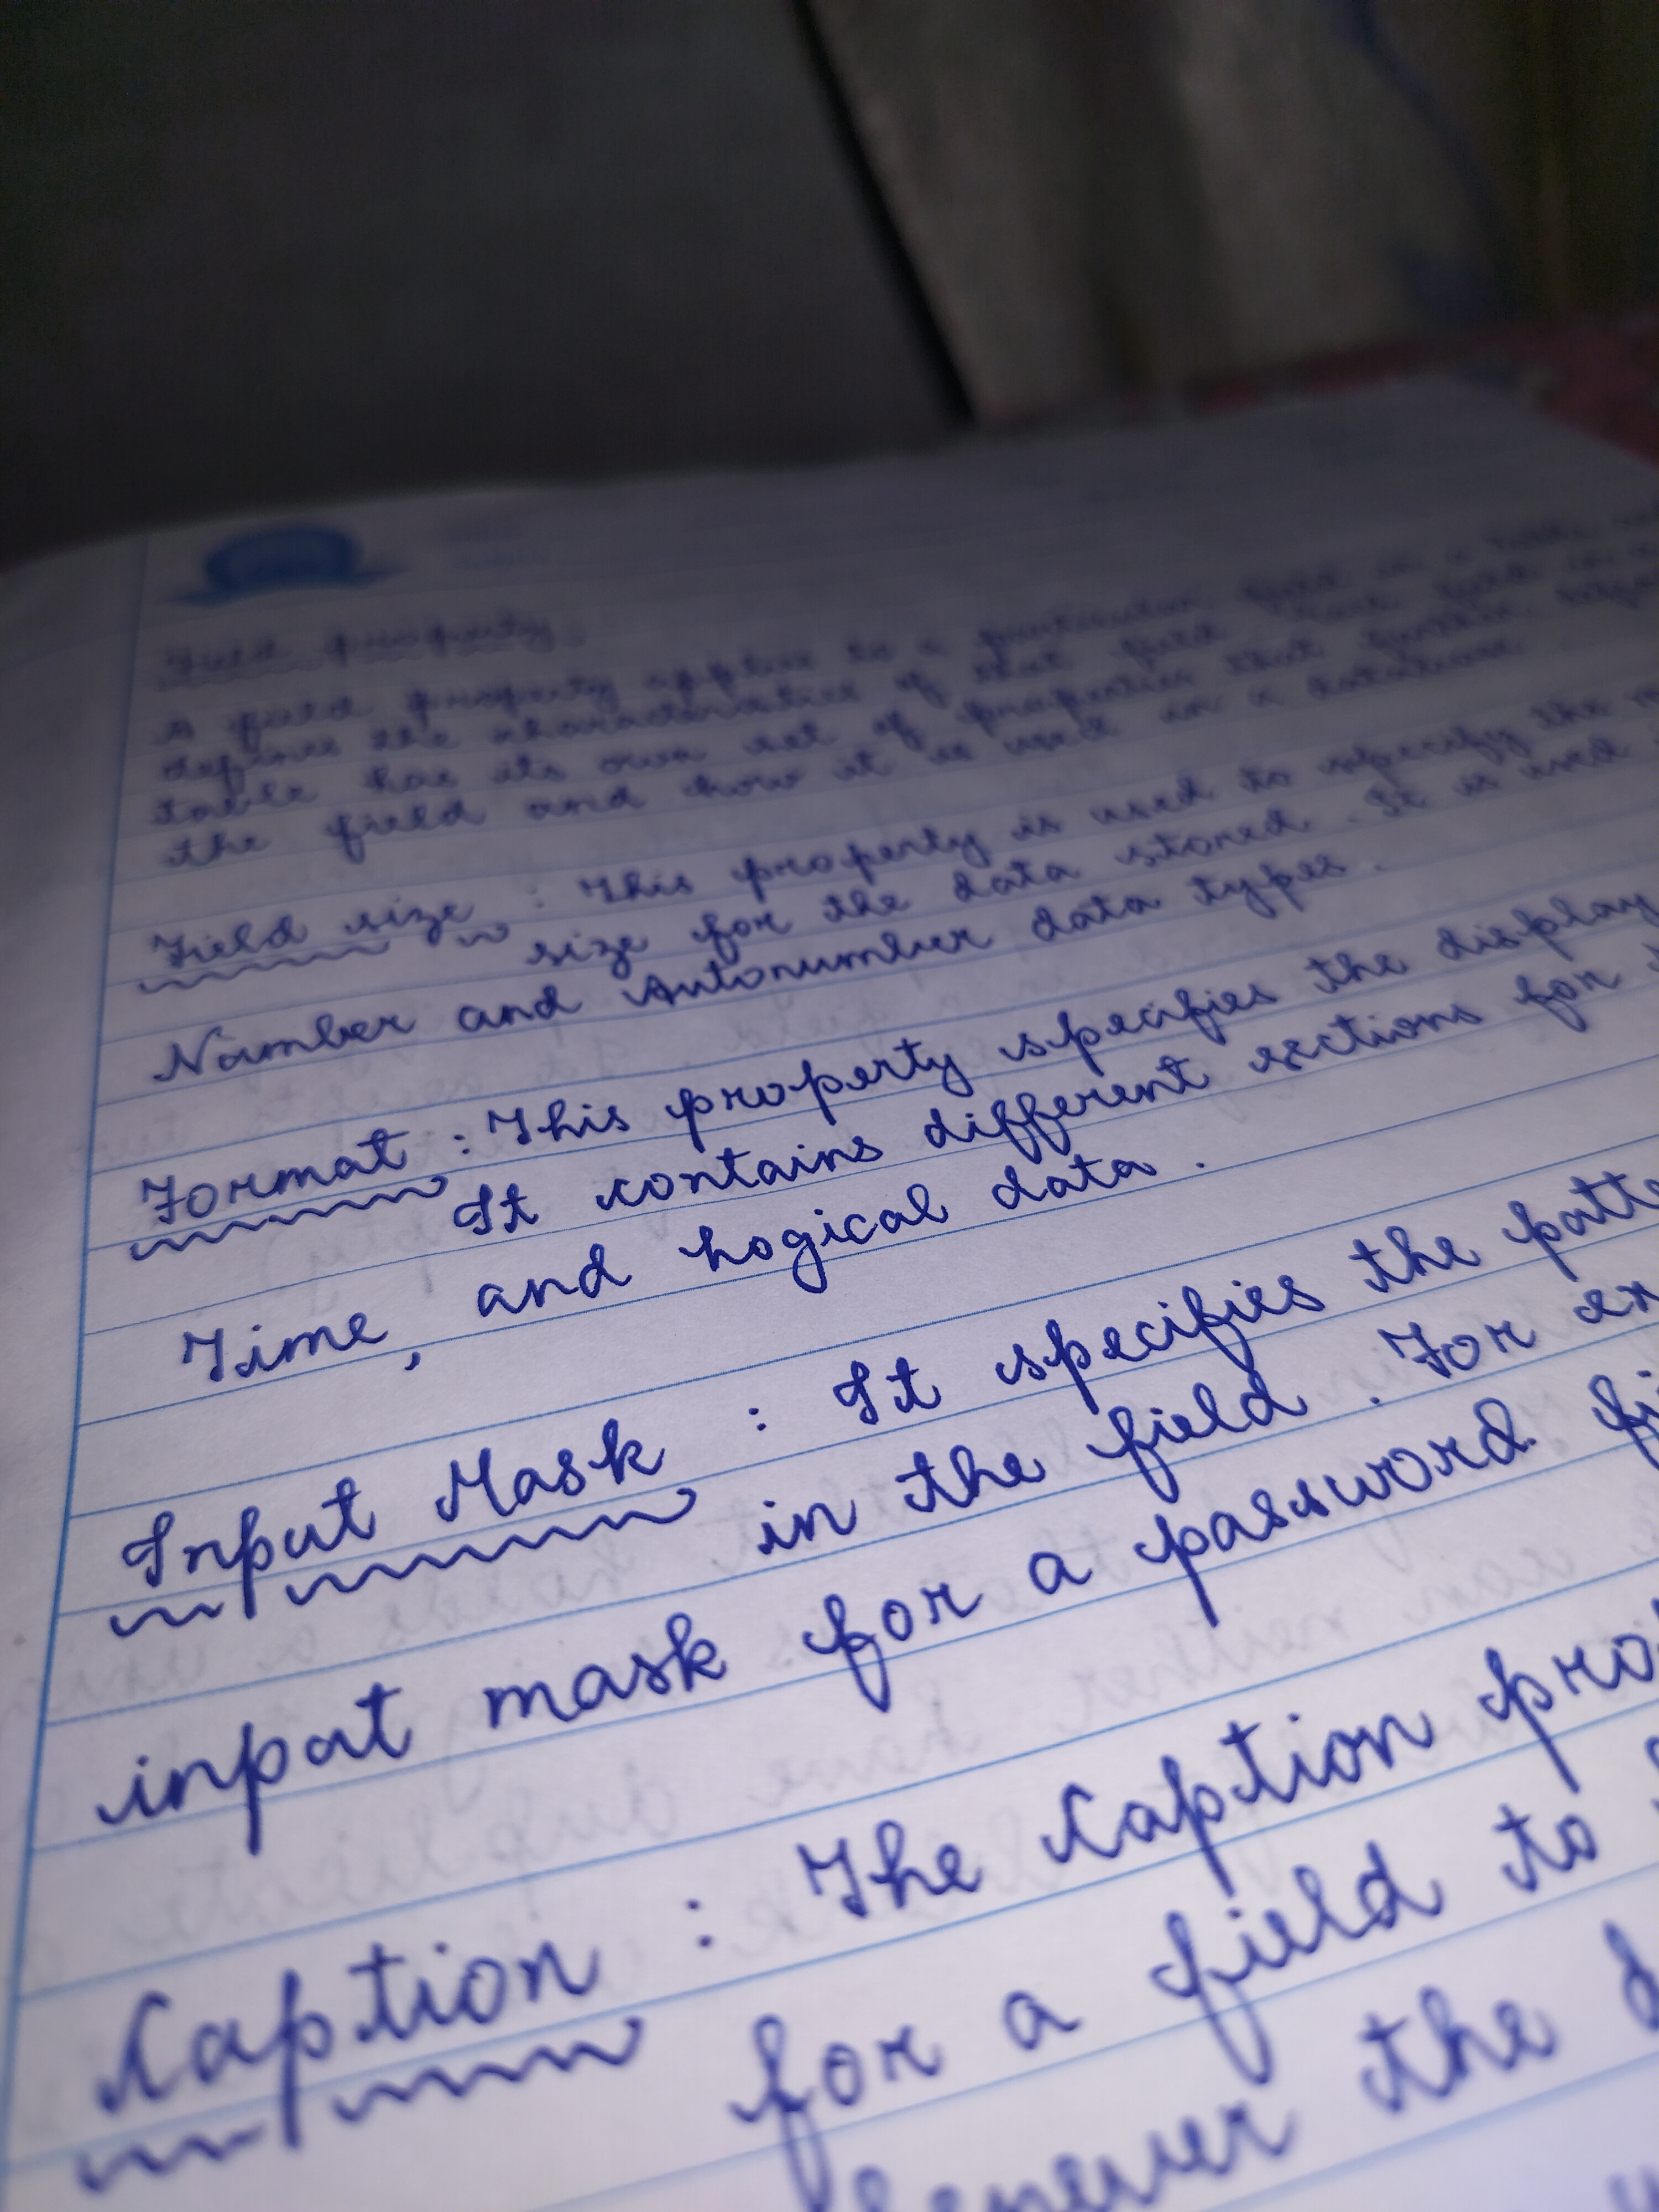 Field property
A field property applies to a particular field in a table
defines the characteristics of that field
table has its own set of properties that further
the field and how it is used in a database
Field size : This property is used to specify the
size for the data stored . It is used
Number and Autonumber data types .
Format : This property specifies the display
It contains different sections for
Time , and Logical data .
Input Mask : It specifies the patte
in the field . For ex
input mask for a password fi
Caption : The Caption pro
for a field to
the